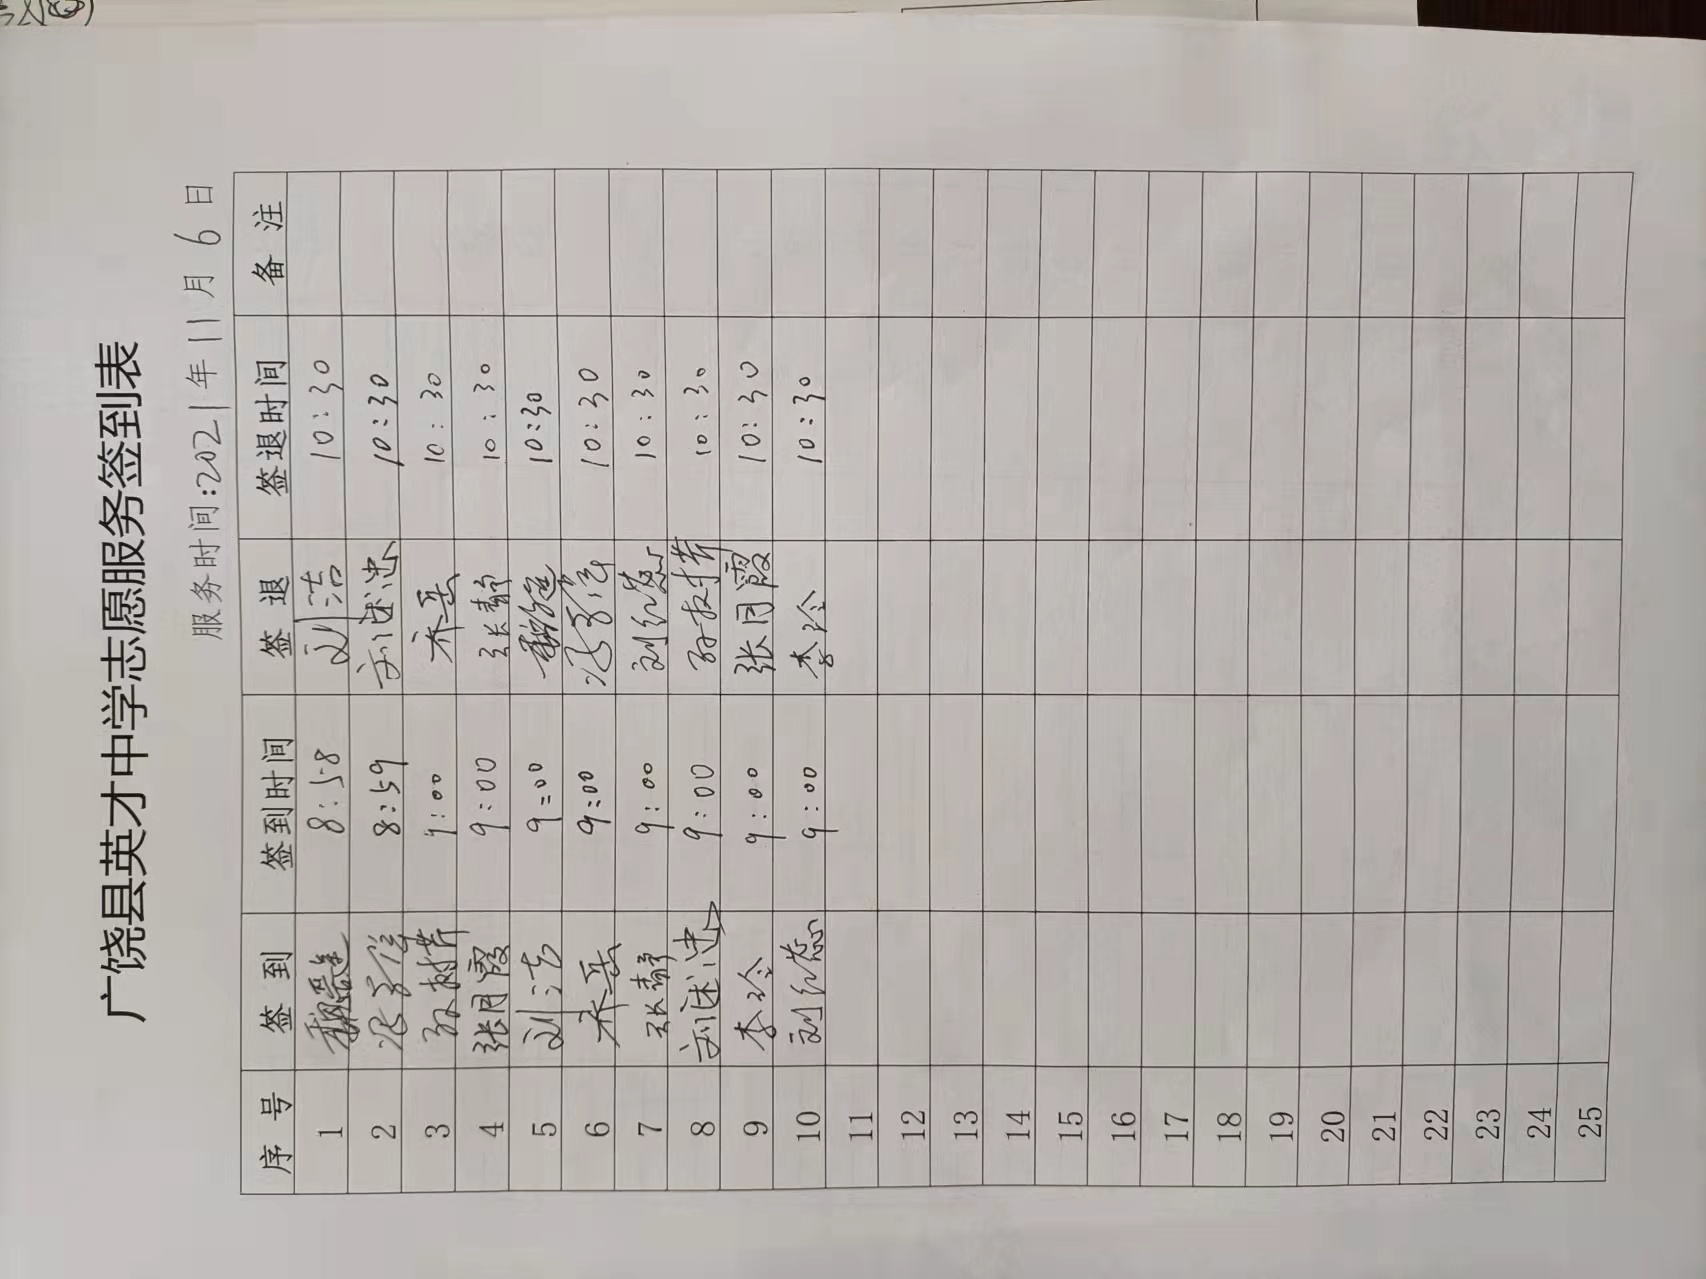 广饶县英才中学志愿服务签到表
服务时间:2021年11月6日
序号 签到 签到时间 签退 签退时间 备注
1 8:58 刘洁 10:30
2 8:59 刘述忠 10:30
3 9:00 乔岳 10:30
4 张月霞 9:00 张静 10:30
5 刘洁 9:00 10:30
6 乔岳 9:00 10:30
7 张静 9:00 刘红蕊 10:30
8 刘述忠 9:00 10:30
9 李玲 9:00 张月霞 10:30
10 刘红蕊 9:00 李玲 10:30
11
12
13
14
15
16
17
18
19
20
21
22
23
24
25